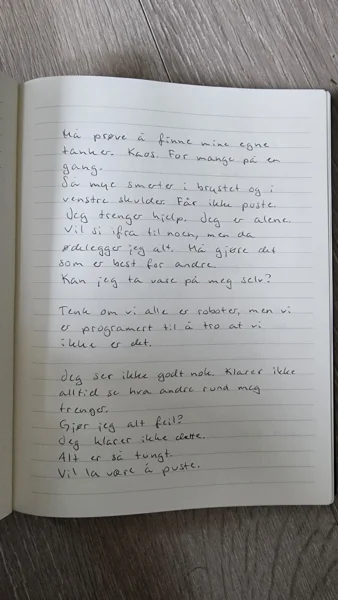 Må prøve å finne mine egne
tanker. Kaos. For mange på en
gang.
Så mye smerter i brystet og i
venstre skulder. Får ikke puste
Jeg trenger hjelp. Jeg er alene.
Vil si ifra til noen, men da
ødelegger jeg alt. Må gjøre det
som er best for andre.
Kan jeg ta vare på meg selv?
Tenk om vi alle er roboter, men vi
er programert til å tro at vi
ikke er det.
Jeg ser ikke godt nok. Klarer ikke
alltid se hva andre rund meg
trenger.
Gjør jeg alt feil?
Jeg klarer ikke dette.
Alt er så tungt.
Vil la være å puste.